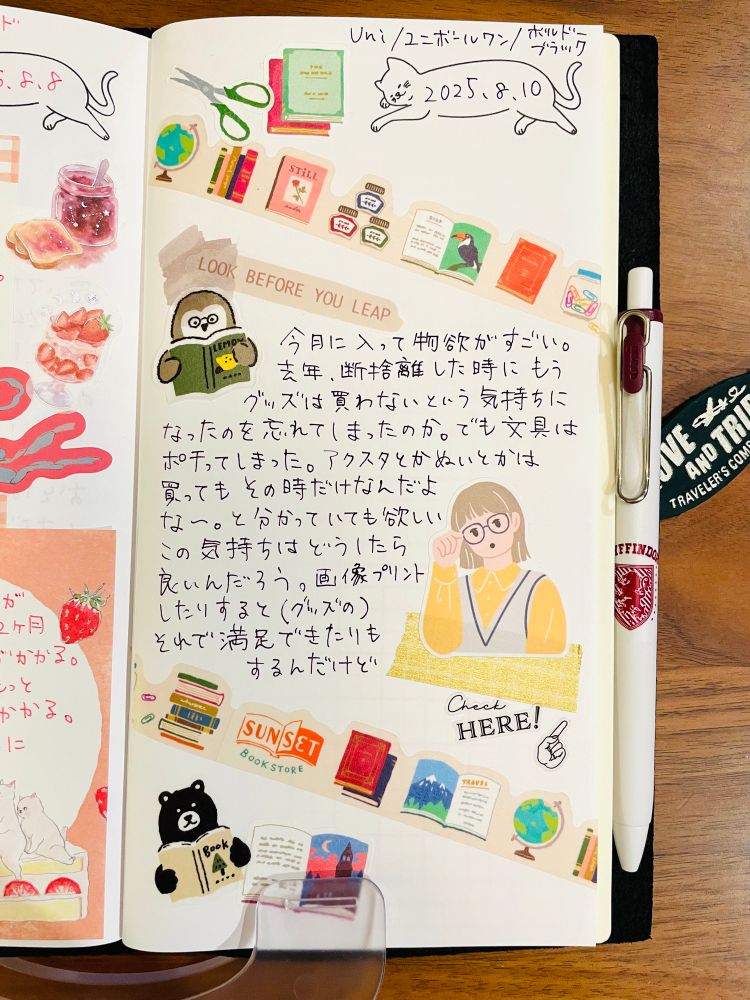 5.8.8
が
2ヶ月
かかる。
っと
かかる。
に
Uni/ユニボールワン/ボルドー
ブラック
2025.8.10
STILL
LOOK BEFORE YOU LEAP
LEMON
今月に入って物欲がすごい。
去年、断捨離した時にもう
グッズは買わないという気持ちに
なったのを忘れてしまったのか。でも文具は
ポチってしまった。アクスタとかぬいとかは
買ってもその時だけなんだよ
な〜。と分かっていても欲しい
この気持ちはどうしたら
良いんだろう。画像プリント
したりすると(グッズの)
それで満足できたりも
するんだけど
Check
HERE!
SUNSET
BOOKSTORE
TRAVEL
BOOK
LOVE
AND TRIP
TRAVELER'S COMP
GRYFFINDOR